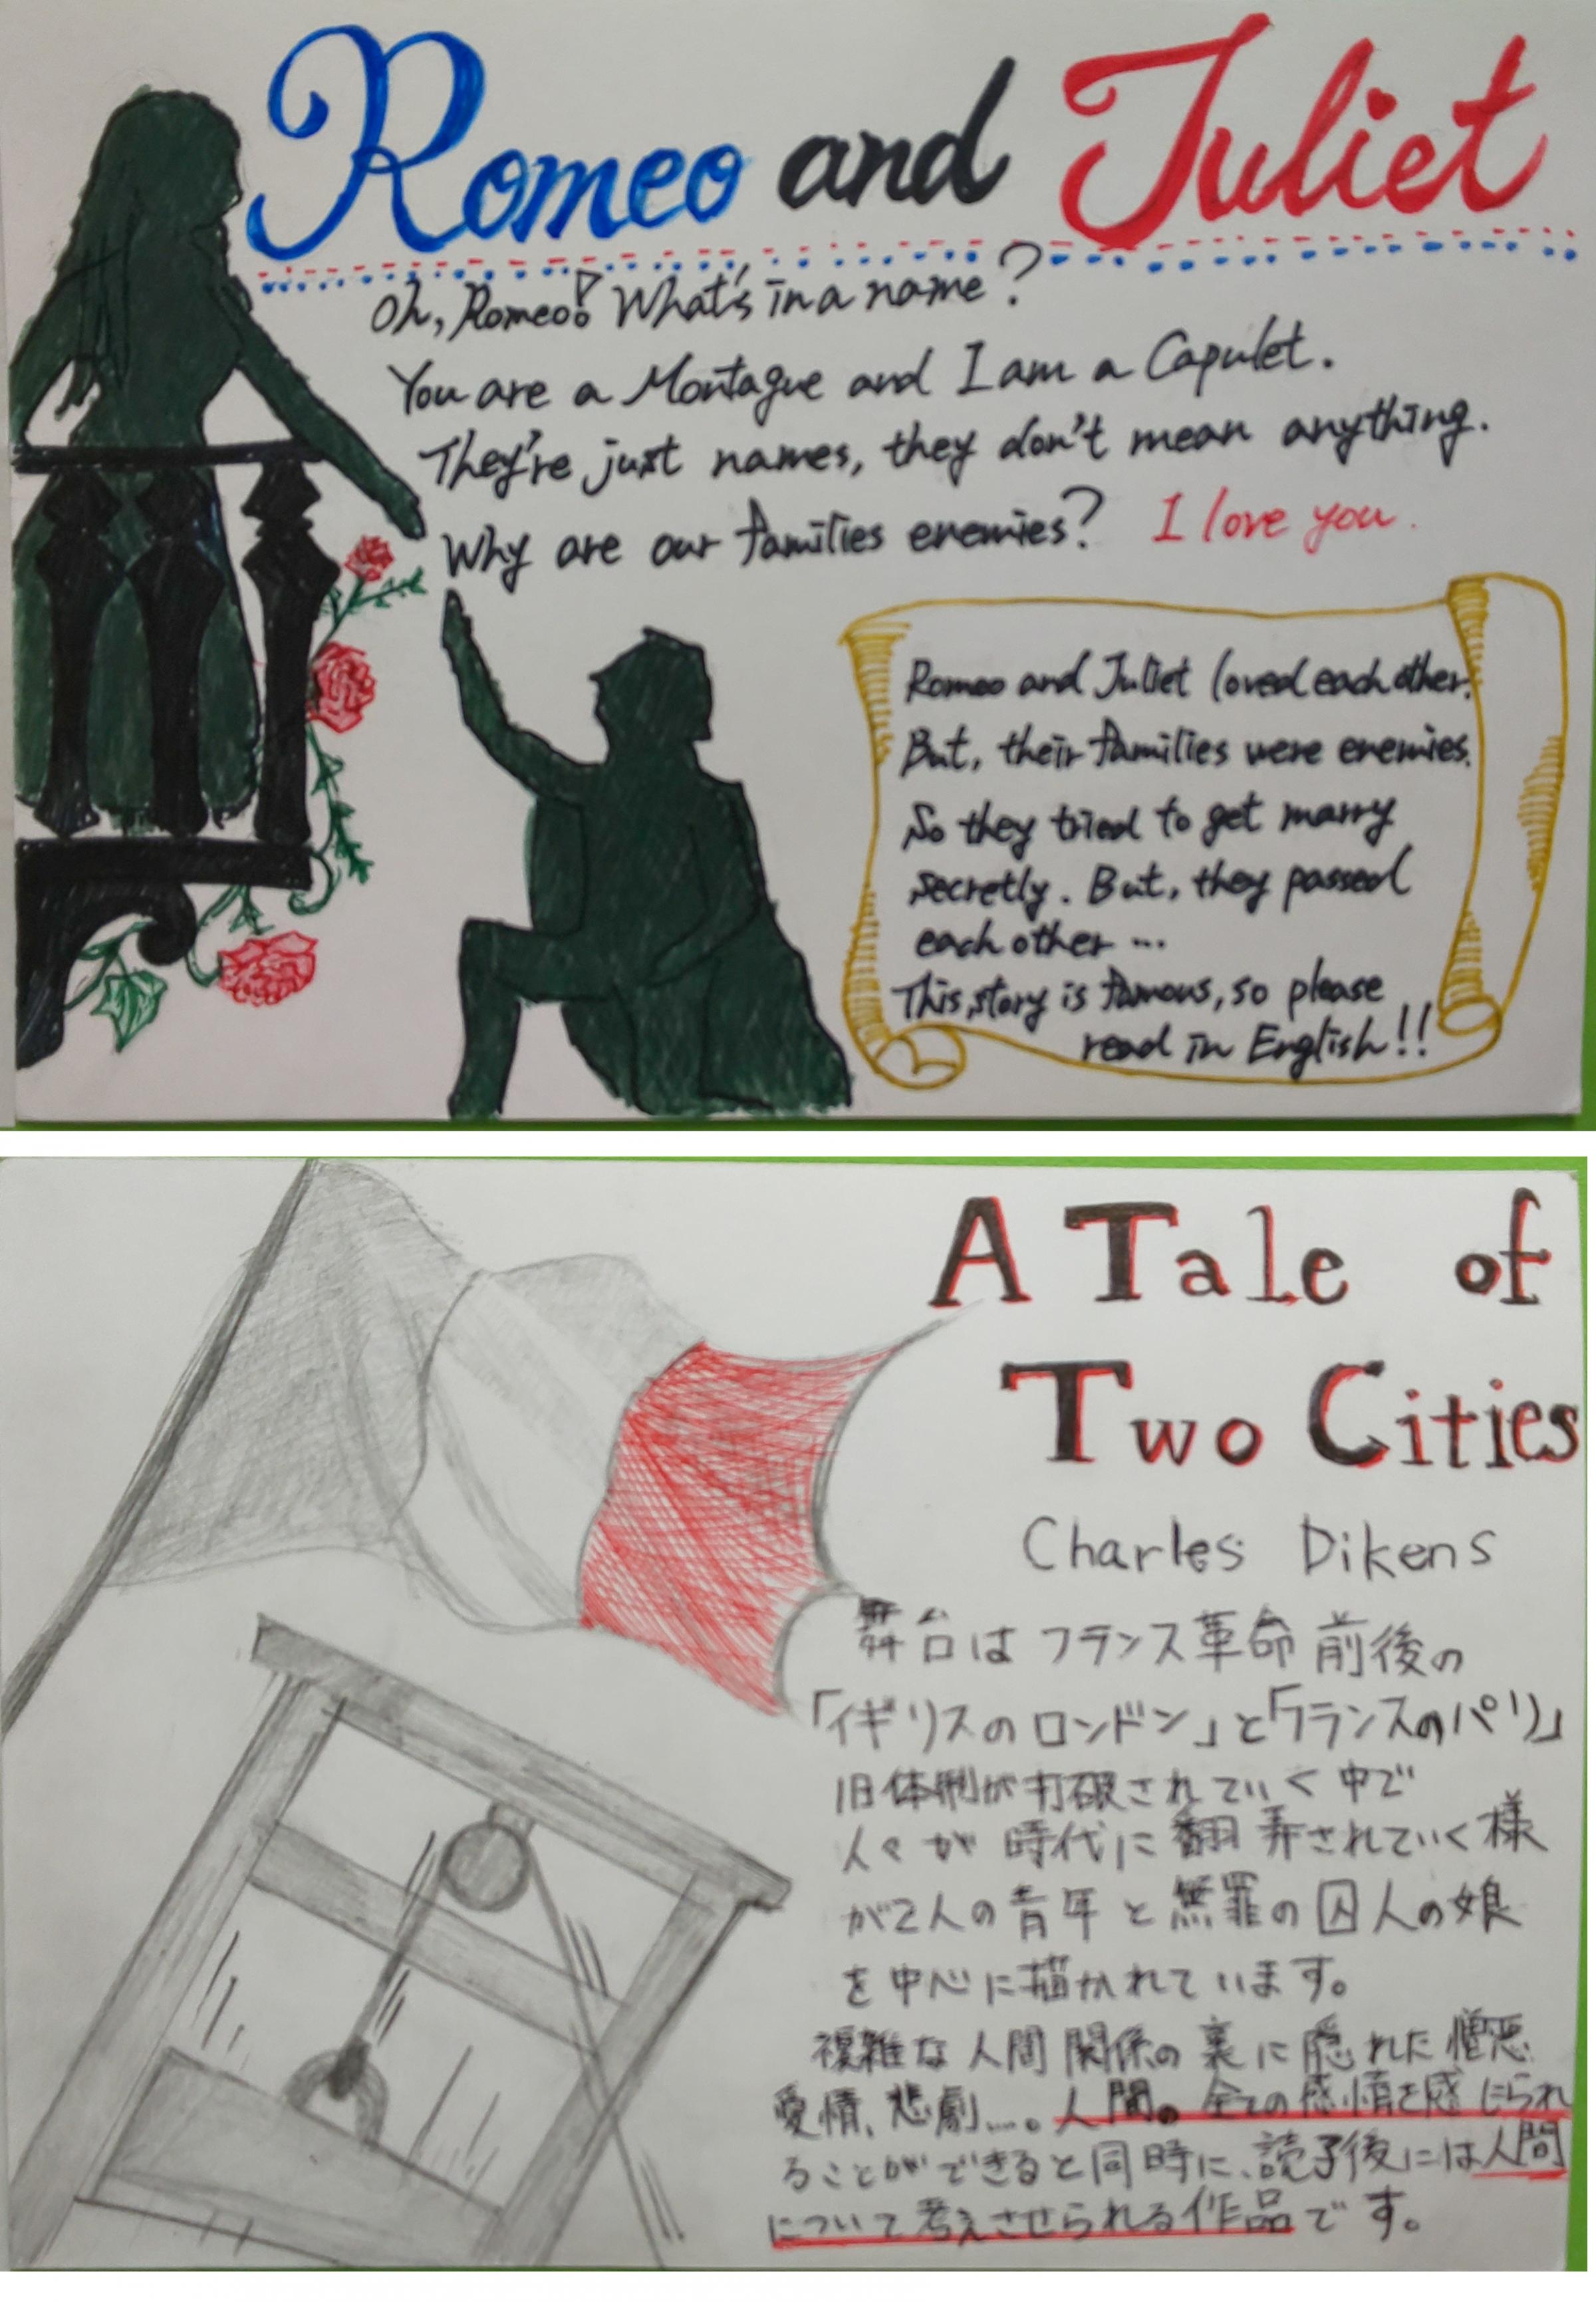 Romeo and Juliet
Oh, Romeo! What's in a name?
You are a Montague and I am a Capulet.
They're just names, they don't mean anything.
Why are our families enemies? I love you.
Romeo and Juliet loved each other.
But, their families were enemies.
So they tried to get marry
secretly. But, they passed
each other ...
This story is famous, so please
read in English!!
A Tale of
Two Cities
Charles Dikens
舞台はフランス革命前後の
「イギリスのロンドン」と「フランスのパリ」
旧体制が打破されていく中で
人々が時代に翻弄されていく様
が2人の青年と無罪の囚人の娘
を中心に描かれています。
複雑な人間関係の裏に隠れた憎悪
愛情、悲劇…。人間の全ての感情を感じられ
ることができると同時に、読了後には人間
について考えさせられる作品です。